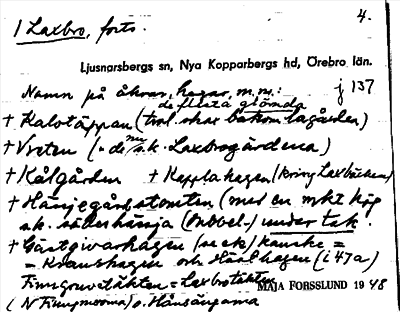 1 Laxbro, forts.
4.
Ljusnarsbergs sn, Nya Kopparbergs hd, Örebro län.
j 137
Namn på åkrar, hagar, m.m.:
de flesta glömda
+ Kalotäppan (trol. strax bakom lagården)
+ Vreten (= de s.k. Laxbrogärdena)
+ Kålgården + Kopplahagen (kring Laxbäcken)
+ Hänjegårdstomten (med en mkt hög
s.k. sädeshänja (dubbel-) under tak.
+ Gästgivarhagen (se ck) kanske =
= Kranshagen och Hästhagen (i 47a)
Finngruvetäkten = Laxbrotäkten
MAJA FORSSLUND 1948.
(N Finnymorna) o. Hånsängarna